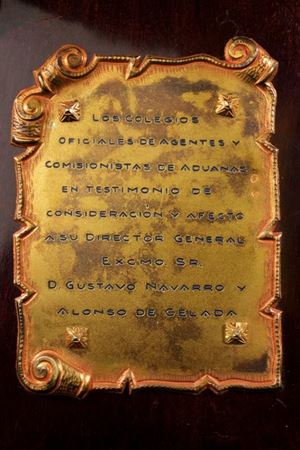 LOS COLEGIOS
OFICIALES DE AGENTES Y
COMISIONISTAS DE ADUANAS
EN TESTIMONIO DE
CONSIDERACIÓN Y AFECTO
A SU DIRECTOR GENERAL
EXCMO. SR.
D. GUSTAVO NAVARRO Y
ALONSO DE CELADA